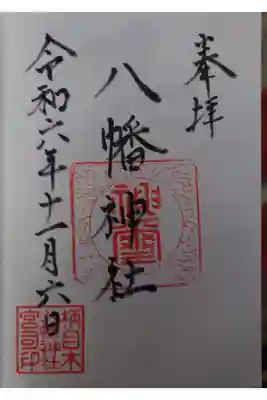 奉拝
八幡神社
令和六年十一月六日